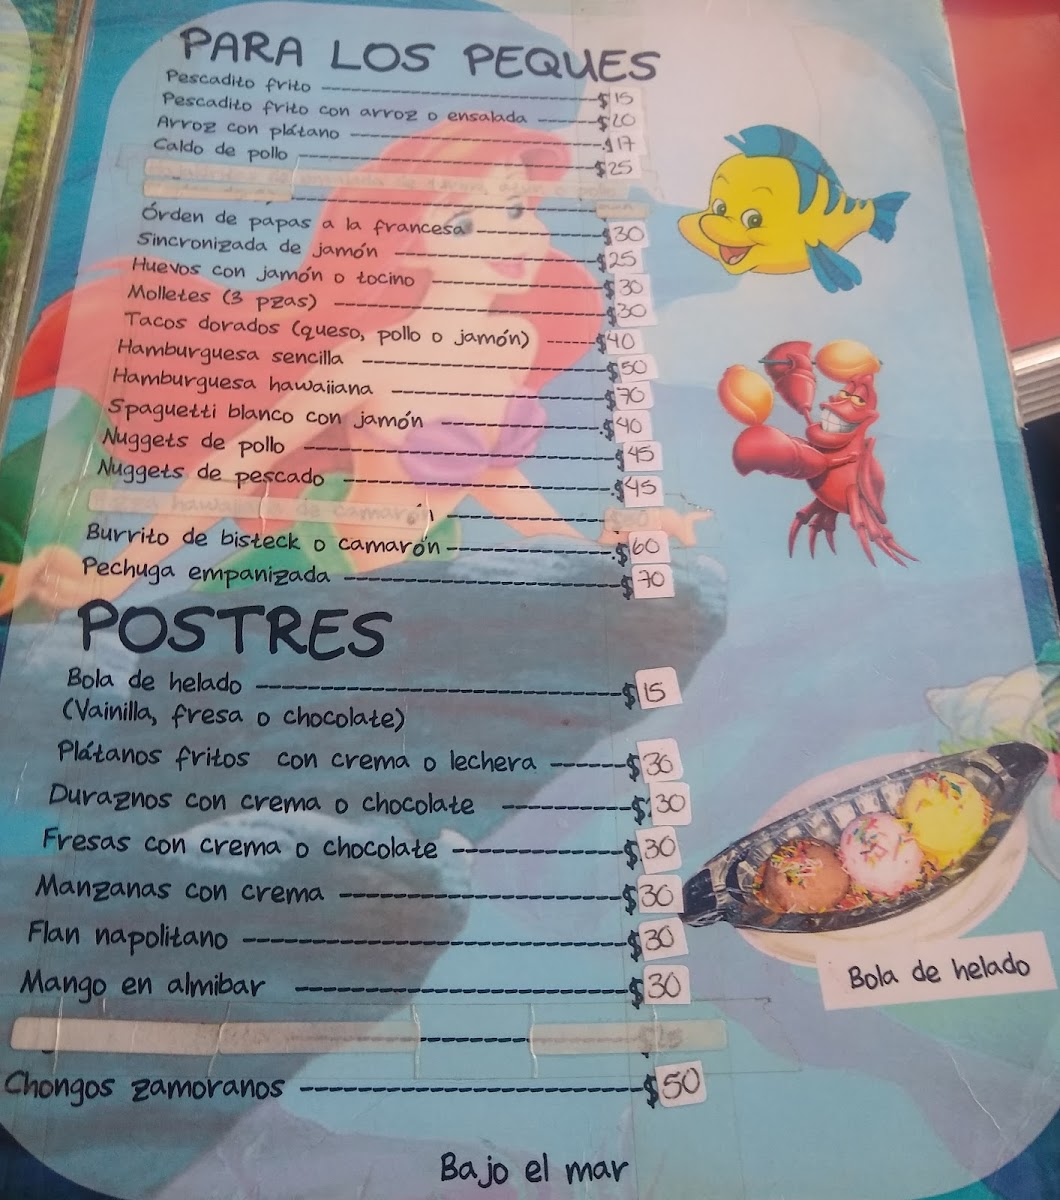 PARA LOS PEQUES
Pescadito frito $15
Pescadito frito con arroz o ensalada $20
Arroz con plátano $17
Caldo de pollo $25
Órden de papas a la francesa $30
Sincronizada de jamón $25
Huevos con jamón o tocino $30
Molletes (3 pzas) $30
Tacos dorados (queso, pollo o jamón) $40
Hamburguesa sencilla $50
Hamburguesa hawaiiana $70
Spaguetti blanco con jamón $40
Nuggets de pollo $45
Nuggets de pescado $45
hawaiiana de camarón
Burrito de bisteck o camarón $60
Pechuga empanizada $70
POSTRES
Bola de helado $15
(Vainilla, fresa o chocolate)
Plátanos fritos con crema o lechera $30
Duraznos con crema o chocolate $30
Fresas con crema o chocolate $30
Manzanas con crema $30
Flan napolitano $30
Mango en almibar $30
Bola de helado
Chongos zamoranos $50
Bajo el mar